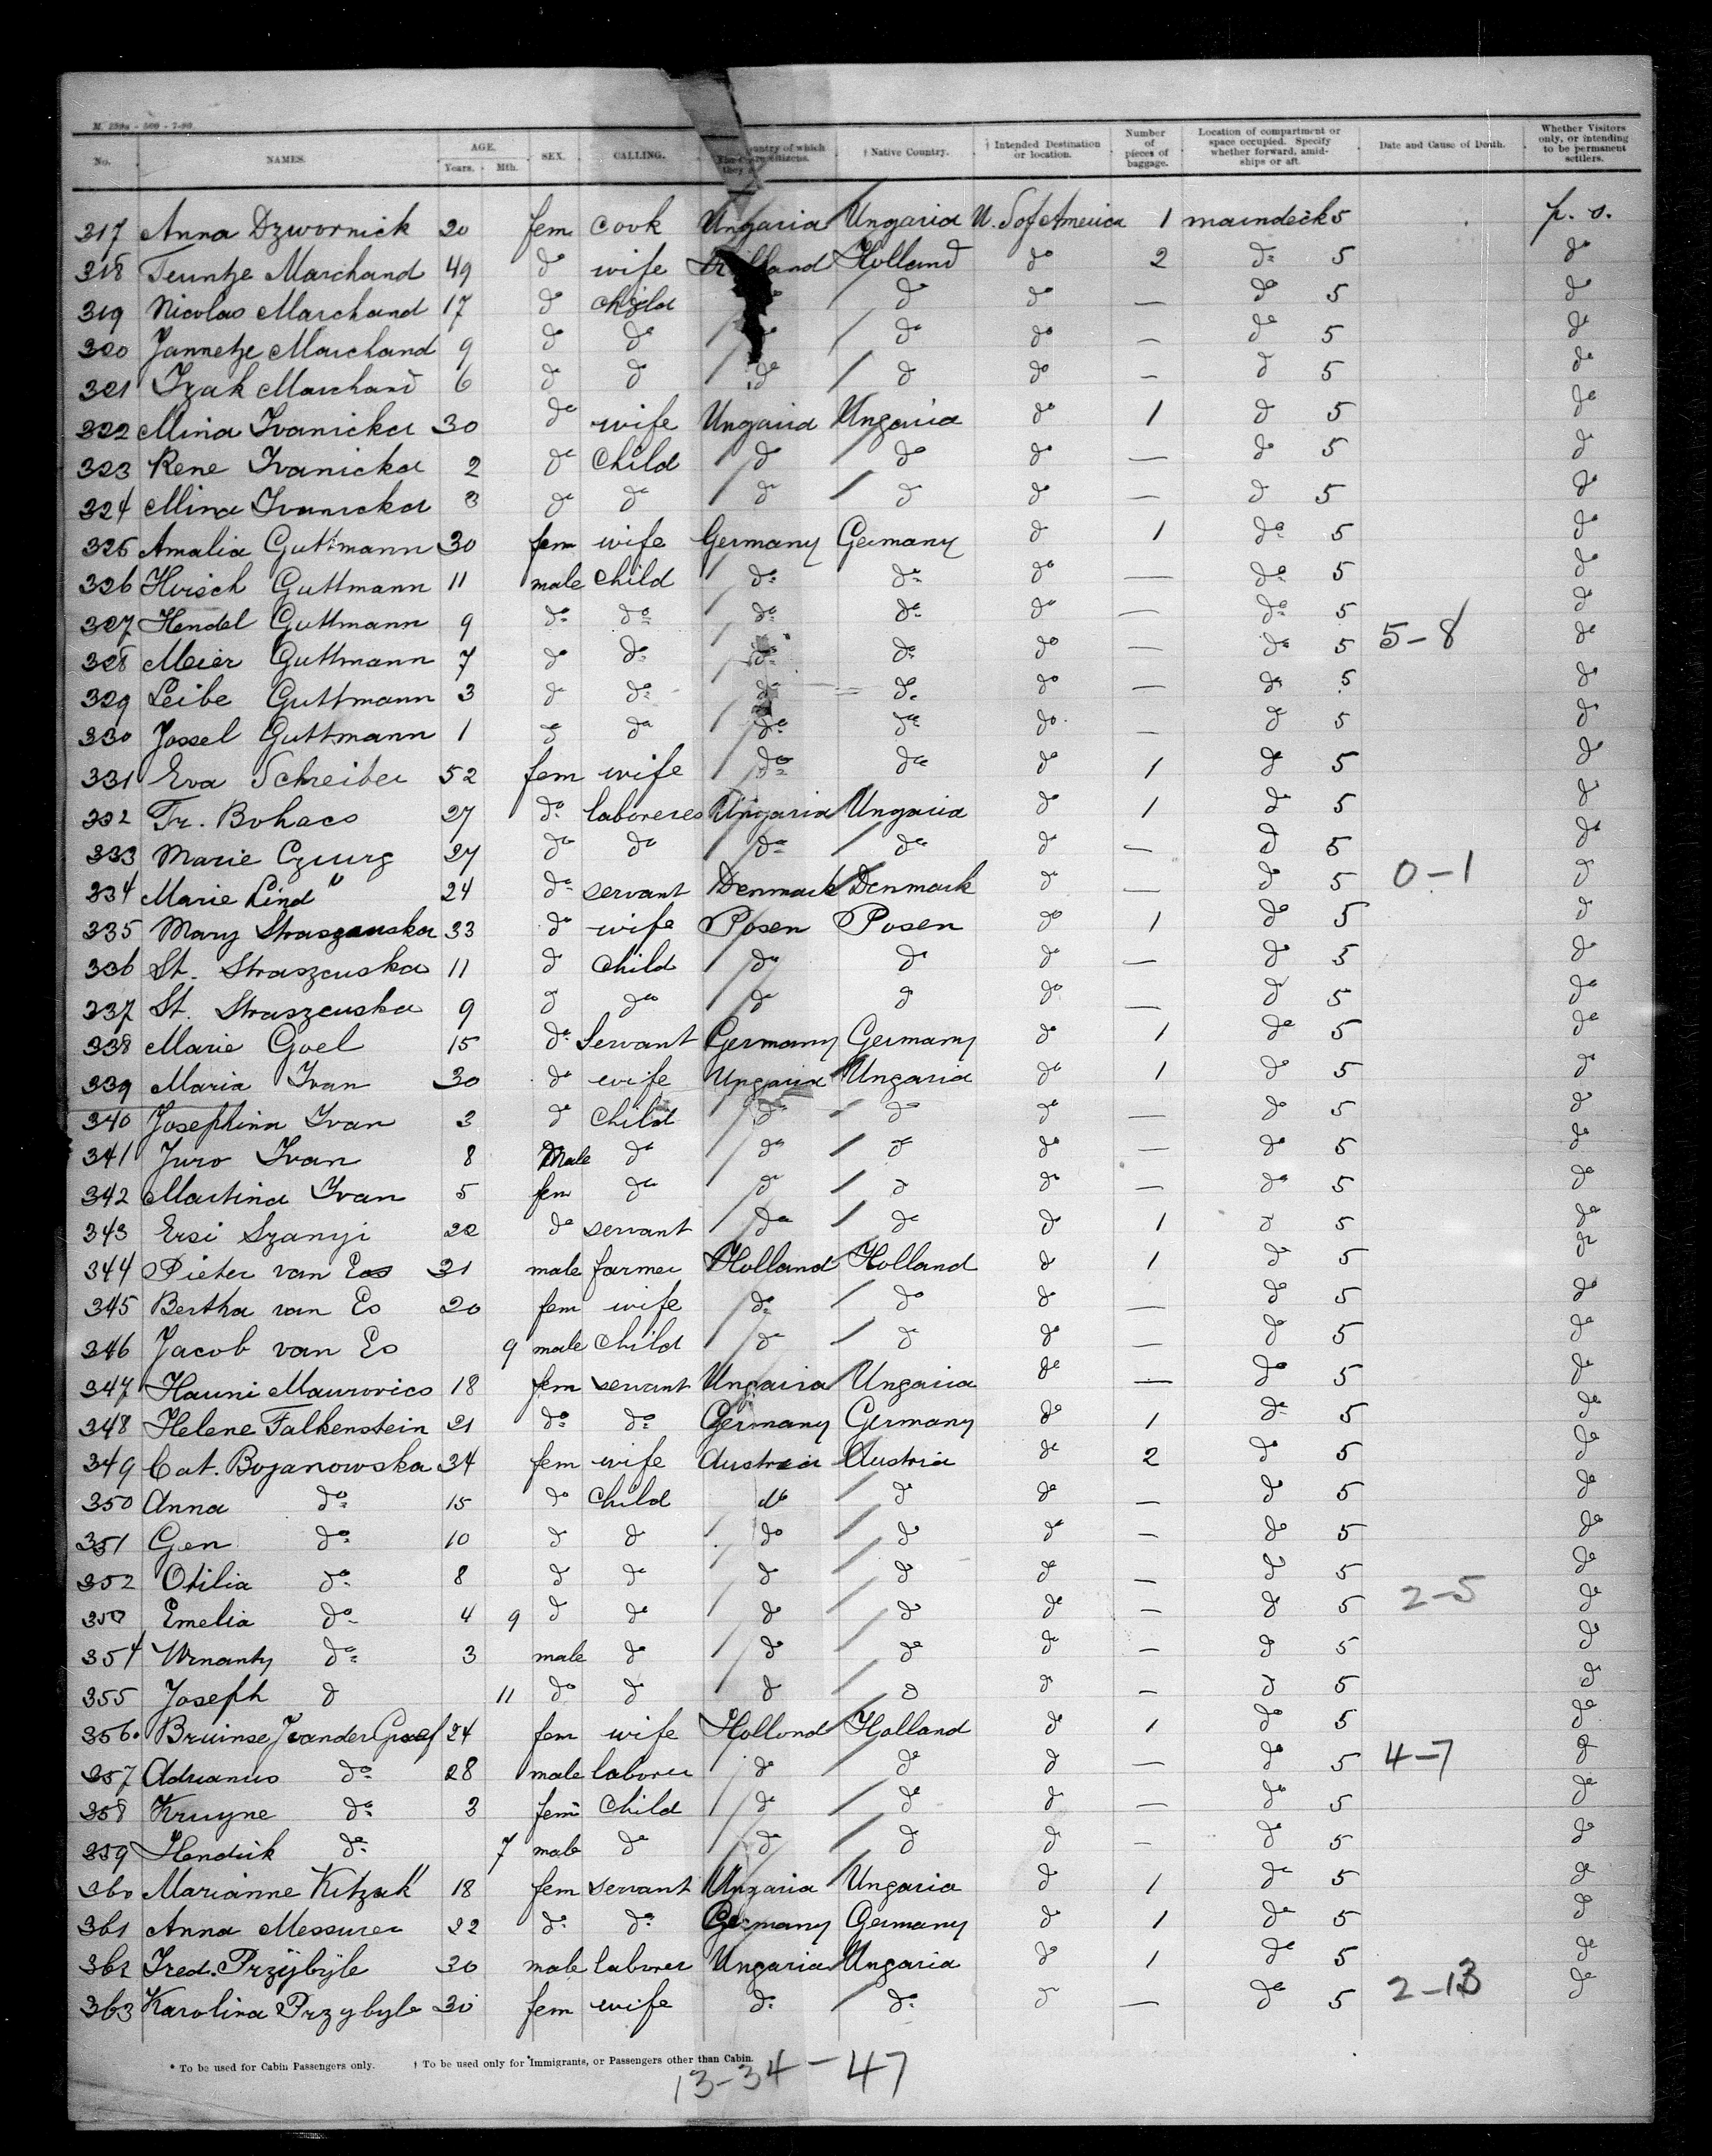 M. 259a - 500 - 7-90
No. NAMES. AGE. Years. Mth. SEX. CALLING. country of which they are citizens. † Native Country. † Intended Destination or location. Number of pieces of baggage. Location of compartment or space occupied. Specify whether forward, amidships or aft. Date and Cause of Death. Whether Visitors only, or intending to be permanent settlers.
317 Anna Dzwornick 20 fem cook Ungaria Ungaria U. S of America 1 maindeck 5 p. s.
318 Teuntje Marchand 49 do wife Holland Holland do 2 do 5 do
319 Nicolas Marchand 17 do child do do — do 5 do
320 Jannetje Marchand 9 do do do do do — do 5 do
321 Izak Marchand 6 do do do do do — do 5 do
322 Mina Ivanicka 30 do wife Ungaria Ungaria do 1 do 5 do
323 Rene Ivanicka 2 do child do do do — do 5 do
324 Mina Ivanicka 3 do do do do do — do 5 do
325 Amalia Guttmann 30 fem wife Germany Germany do 1 do 5 do
326 Hirsch Guttmann 11 male child do do do — do 5 do
327 Hendel Guttmann 9 do do do do do — do 5 do
328 Meier Guttmann 7 do do do do do — do 5 5-8 do
329 Leibe Guttmann 3 do do do do do — do 5 do
330 Jossel Guttmann 1 do do do do do — do 5 do
331 Eva Schreiber 52 fem wife do do do 1 do 5 do
332 Fr. Bohacs 27 do laboreres Ungaria Ungaria do 1 do 5 do
333 Marie Czurg 27 do do do do do — do 5 do
334 Marie Lind 24 do servant Denmark Denmark do — do 5 0-1 do
335 Mary Straszewska 33 do wife Posen Posen do 1 do 5 do
336 St. Straszewska 11 do child do do do — do 5 do
337 St. Straszewska 9 do do do do do — do 5 do
338 Marie Goel 15 do Servant Germany Germany do 1 do 5 do
339 Maria Ivan 30 do wife Ungaria Ungaria do 1 do 5 do
340 Josephina Ivan 3 do child do do do — do 5 do
341 Juro Ivan 8 Male do do do do — do 5 do
342 Martina Ivan 5 fem do do do do — do 5 do
343 Ersi Szanyi 22 do servant do do do 1 do 5 do
344 Pieter van Es 31 male farmer Holland Holland do 1 do 5 do
345 Bertha van Es 20 fem wife do do do — do 5 do
346 Jacob van Es 9 male child do do do — do 5 do
347 Hanni Maurovics 18 fem servant Ungaria Ungaria do — do 5 do
348 Helene Falkenstein 21 do do Germany Germany do 1 do 5 do
349 Cat. Bojanowska 34 fem wife Austria Austria do 2 do 5 do
350 Anna do 15 do child do do do — do 5 do
351 Gen do 10 do do do do do — do 5 do
352 Otilia do 8 do do do do do — do 5 do
353 Emelia do 4 9 do do do do do — do 5 2-5 do
354 do 3 male do do do do — do 5 do
355 Joseph do 11 do do do do do — do 5 do
356 Bruinse J van der Graef 24 fem wife Holland Holland do 1 do 5 do
357 Adrianus do 28 male laborer do do do — do 5 4-7 do
358 Kruyne do 3 fem child do do do — do 5 do
359 Hendrik do 7 male do do do do — do 5 do
360 Marianne Kitzak 18 fem servant Ungaria Ungaria do 1 do 5 do
361 Anna Messurer 22 do do Germany Germany do 1 do 5 do
362 Fred. Przybyle 30 male laborer Ungaria Ungaria do 1 do 5 do
363 Karolina Przybyle 30 fem wife do do do — do 5 2-13 do
* To be used for Cabin Passengers only. † To be used only for Immigrants, or Passengers other than Cabin.
13-34-47